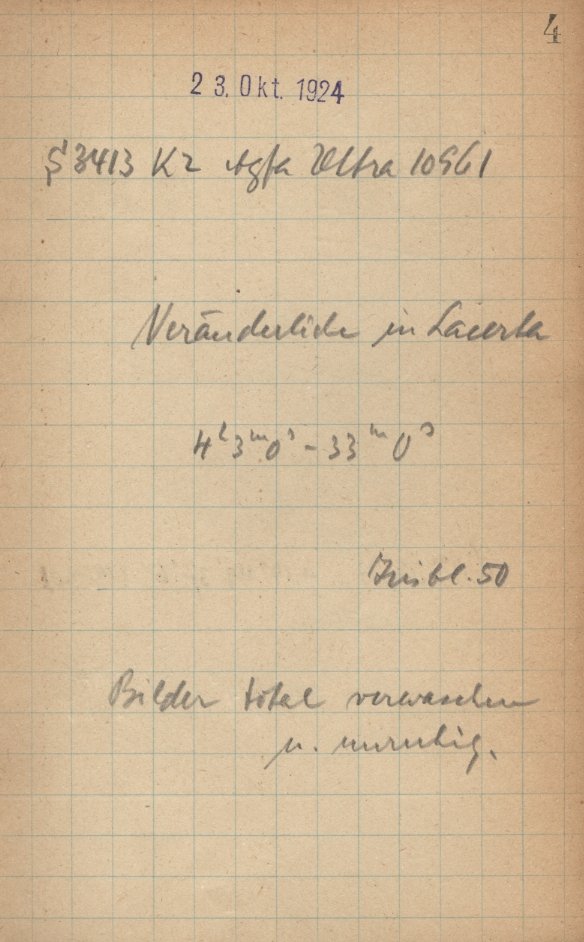 4
23. Okt. 1924
S 3413 K2 Agfa Ultra 10961
Veränderliche in Lacerta
4h3m0s - 33m0s
Irisbl. 50
Bilder total verwaschen
u. unruhig.